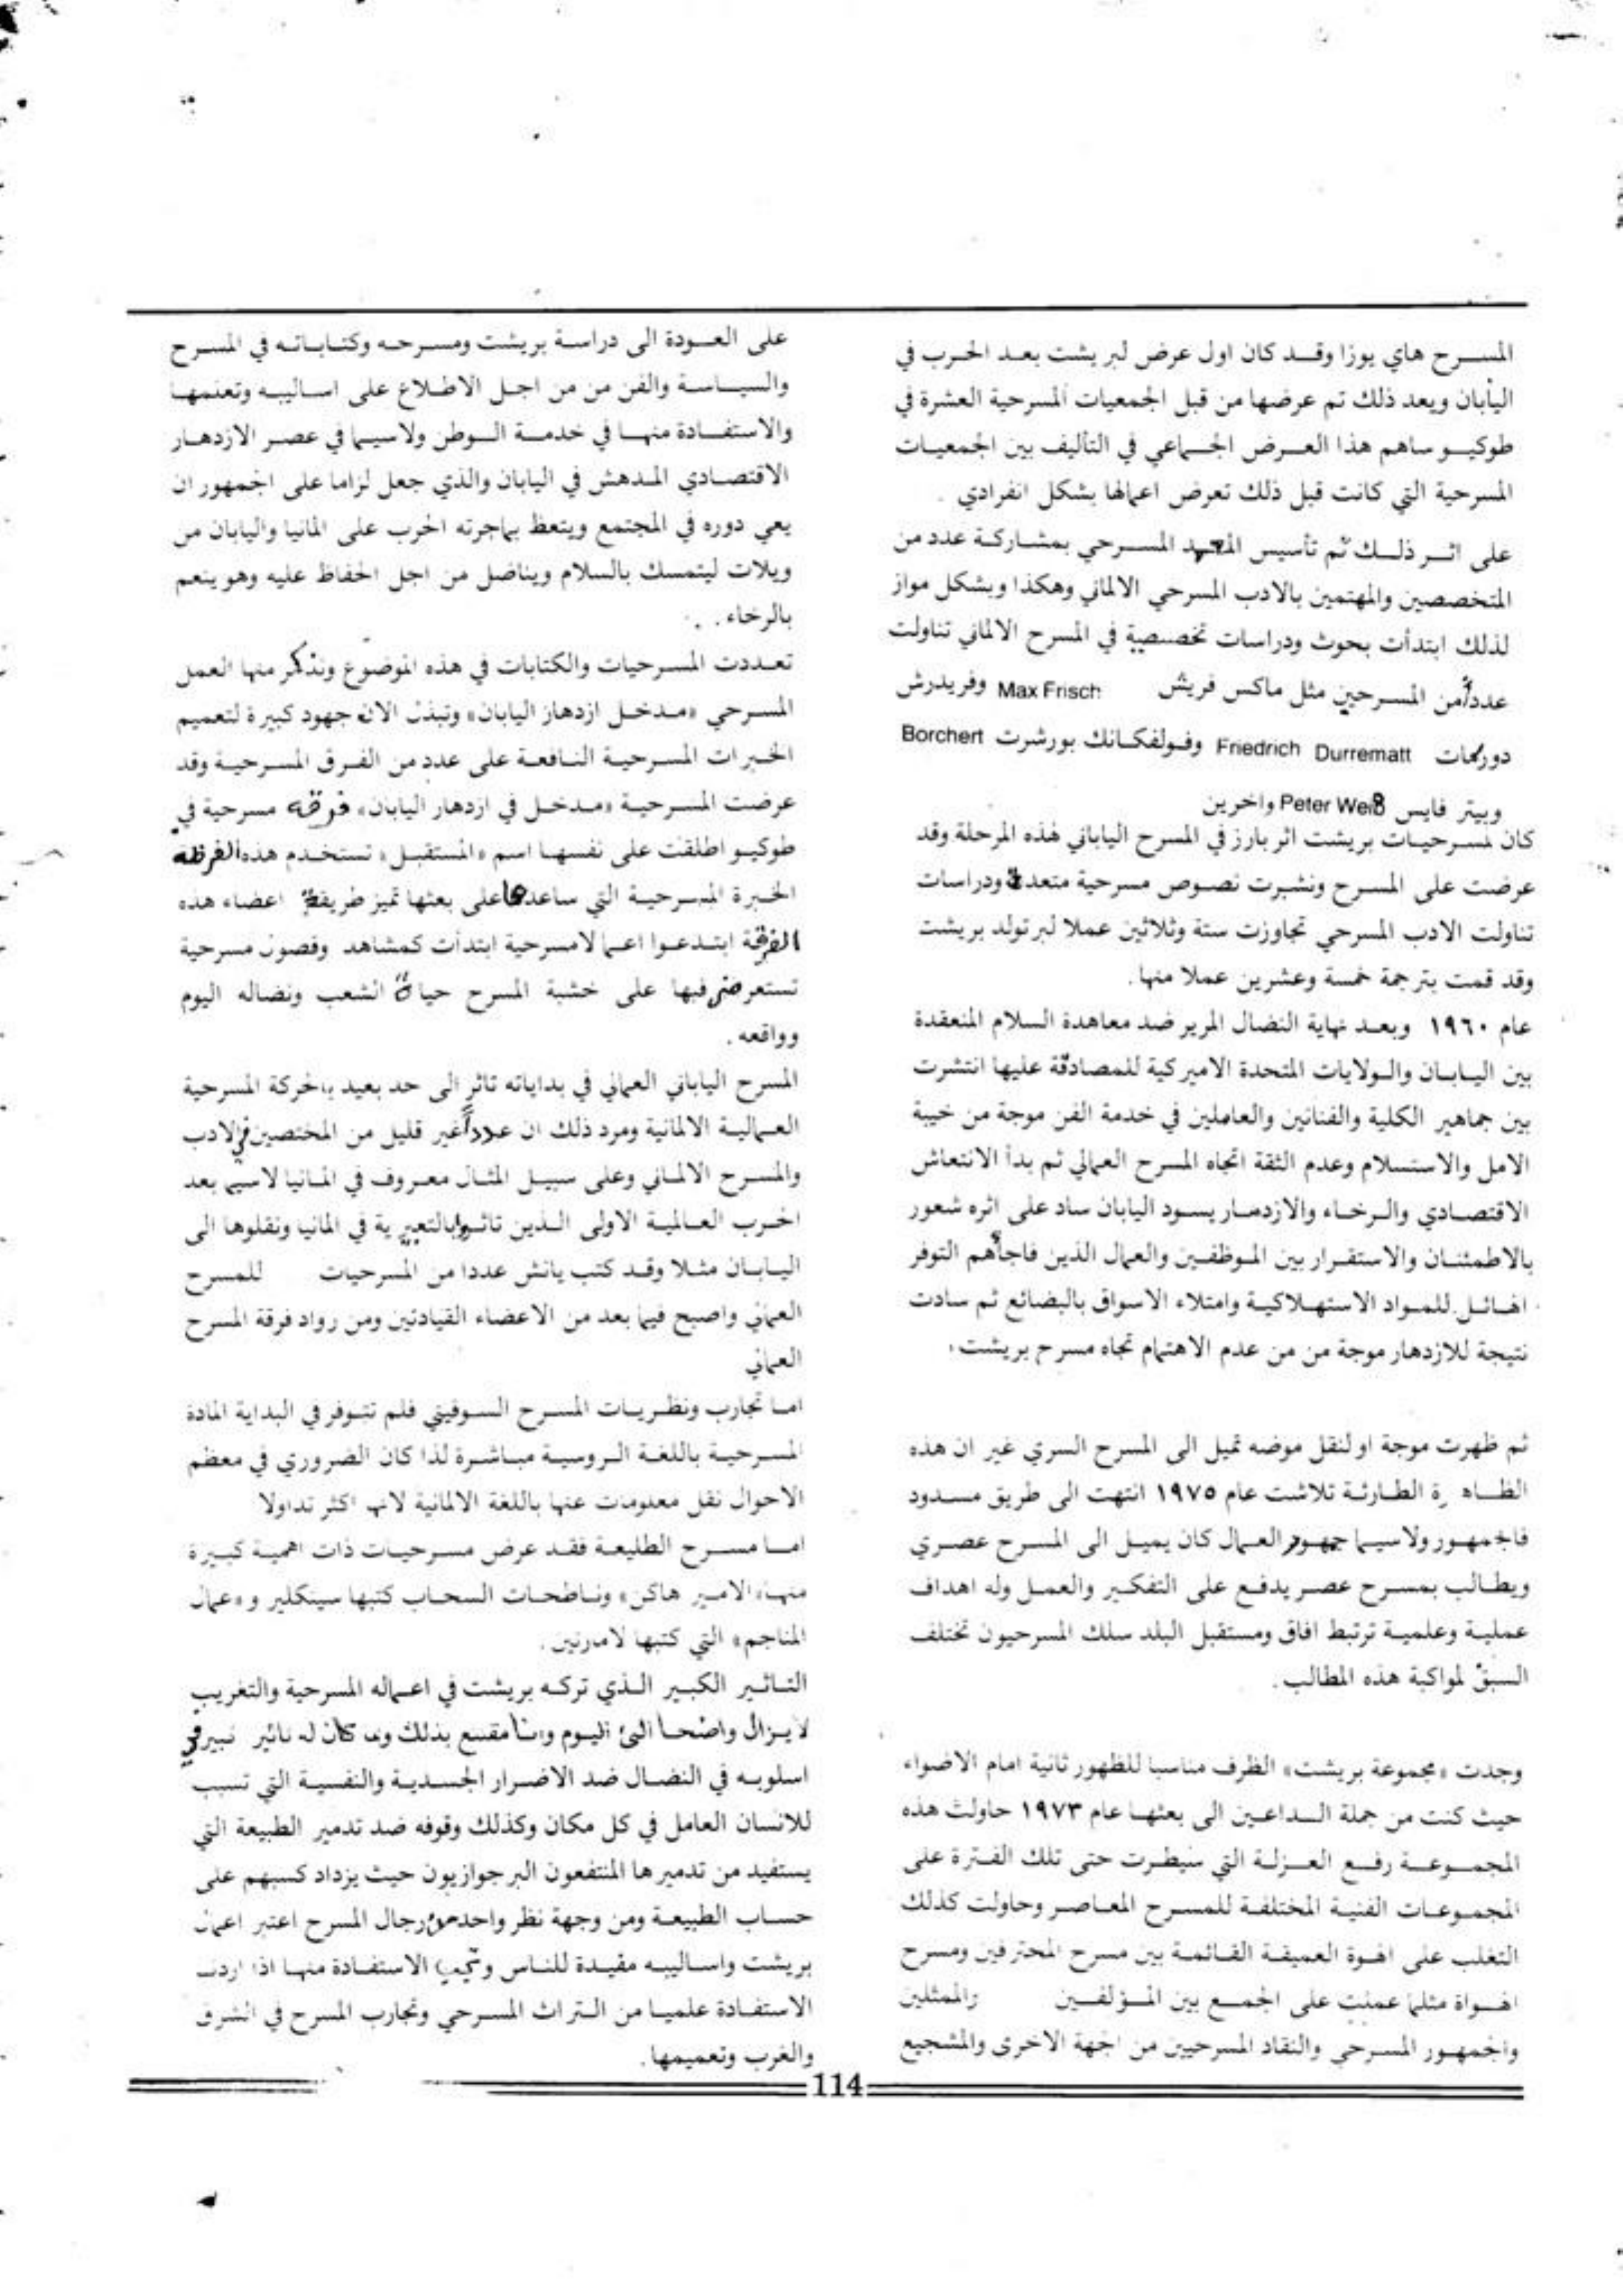 المسرح هاي يوزا وقد كان اول عرض لبريشت بعد الحرب في
اليابان وبعد ذلك تم عرضها من قبل الجمعيات المسرحية العشرة في
طوكيو ساهم هذا العرض الجماعي في التأليف بين الجمعيات
المسرحية التي كانت قبل ذلك تعرض اعمالها بشكل انفرادي .
على اثر ذلك تم تأسيس المعهد المسرحي بمشاركة عدد من
المتخصصين والمهتمين بالادب المسرحي الالماني وهكذا وبشكل مواز
لذلك ابتدأت بحوث ودراسات تخصصية في المسرح الالماني تناولت
عدداً من المسرحين مثل ماكس فريش Max Frisch وفريدرش
دورنمات Friedrich Durrematt وفولفكانك بورشرت Borchert
وبيتر فايس Peter Weiß واخرين
كان لمسرحيات بريشت اثر بارز في المسرح الياباني لهذه المرحلة وقد
عرضت على المسرح ونشرت نصوص مسرحية متعددة ودراسات
تناولت الادب المسرحي تجاوزت ستة وثلاثين عملا لبرتولد بريشت
وقد قمت بترجمة خمسة وعشرين عملا منها .
عام ١٩٦٠ وبعد نهاية النضال المرير ضد معاهدة السلام المنعقدة
بين اليابان والولايات المتحدة الاميركية للمصادقة عليها انتشرت
بين جماهير الكلية والفنانين والعاملين في خدمة الفن موجة من خيبة
الامل والاستسلام وعدم الثقة اتجاه المسرح العمالي ثم بدأ الانتعاش
الاقتصادي والرخاء والازدهار يسود اليابان ساد على اثره شعور
بالاطمئنان والاستقرار بين الموظفين والعمال الذين فاجأهم التوفر
الهائل للمواد الاستهلاكية وامتلاء الاسواق بالبضائع ثم سادت
نتيجة للازدهار موجة من من عدم الاهتمام تجاه مسرح بريشت .
ثم ظهرت موجة او لنقل موضه تميل الى المسرح السري غير ان هذه
الظاهرة الطارئة تلاشت عام ١٩٧٥ انتهت الى طريق مسدود
فالجمهور ولاسيما جمهور العمال كان يميل الى المسرح عصري
ويطالب بمسرح عصر يدفع على التفكير والعمل وله اهداف
عملية وعلمية ترتبط افاق ومستقبل البلد سلك المسرحيون تختلف
السبق لمواكبة هذه المطالب .
وجدت «مجموعة بريشت» الظرف مناسبا للظهور ثانية امام الاضواء
حيث كنت من جملة الداعين الى بعثها عام ١٩٧٣ حاولت هذه
المجموعة رفع العزلة التي سيطرت حتى تلك الفترة على
المجموعات الفنية المختلفة للمسرح المعاصر وحاولت كذلك
التغلب على الهوة العميقة القائمة بين مسرح المحترفين ومسرح
الهواة مثلما عملت على الجمع بين المؤلفين والممثلين
والجمهور المسرحي والنقاد المسرحيين من الجهة الاخرى والمشجيع
على العودة الى دراسة بريشت ومسرحه وكتاباته في المسرح
والسياسة والفن من من اجل الاطلاع على اساليبه وتعلمها
والاستفادة منها في خدمة الوطن ولاسيما في عصر الازدهار
الاقتصادي المدهش في اليابان والذي جعل لزاما على الجمهور ان
يعي دوره في المجتمع ويتعظ بماجرته الحرب على المانيا واليابان من
ويلات ليتمسك بالسلام ويناضل من اجل الحفاظ عليه وهو ينعم
بالرخاء . .
تعددت المسرحيات والكتابات في هذه الموضوع ونذكر منها العمل
المسرحي «مدخل ازدهار اليابان» وتبذل الان جهود كبيرة لتعميم
الخبرات المسرحية النافعة على عدد من الفرق المسرحية وقد
عرضت المسرحية «مدخل في ازدهار اليابان» فرقة مسرحية في
طوكيو اطلقت على نفسها اسم «المستقبل» تستخدم هذه الفرقة
الخبرة المسرحية التي ساعدها على بعثها تميز طريقة اعضاء هذه
الفرقة ابتدعوا اعمالا مسرحية ابتدأت كمشاهد وفصول مسرحية
تستعرض فيها على خشبة المسرح حياة الشعب ونضاله اليوم
وواقعه .
المسرح الياباني العمالي في بداياته تاثر الى حد بعيد بالحركة المسرحية
العمالية الالمانية ومرد ذلك ان عدداً غير قليل من المختصين في الادب
والمسرح الالماني وعلى سبيل المثال معروف في المانيا لاسيما بعد
الحرب العالمية الاولى الذين تاثروا بالتعبيرية في المانيا ونقلوها الى
اليابان مثلا وقد كتب يانش عددا من المسرحيات للمسرح
العمالي واصبح فيما بعد من الاعضاء القيادتين ومن رواد فرقة المسرح
العمالي
اما تجارب ونظريات المسرح السوفيتي فلم تتوفر في البداية المادة
المسرحية باللغة الروسية مباشرة لذا كان الضروري في معظم
الاحوال نقل معلومات عنها باللغة الالمانية لانها اكثر تداولا
اما مسرح الطليعة فقد عرض مسرحيات ذات اهمية كبيرة
منها «الامير هاكن» وناطحات السحاب كتبها سينكلير و «عمال
المناجم» التي كتبها لامارتين .
التاثير الكبير الذي تركه بريشت في اعماله المسرحية والتغريب
لا يزال واضحا الى اليوم وانا مقتنع بذلك وبما كان له تاثير كبير في
اسلوبه في النضال ضد الاضرار الجسدية والنفسية التي تسبب
للانسان العامل في كل مكان وكذلك وقوفه ضد تدمير الطبيعة التي
يستفيد من تدميرها المنتفعون البرجوازيون حيث يزداد كسبهم على
حساب الطبيعة ومن وجهة نظر واحد من رجال المسرح اعتبر اعمال
بريشت واساليبه مقيدة للناس ويجب الاستفادة منها اذا اردنا
الاستفادة علميا من التراث المسرحي وتجارب المسرح في الشرق
والغرب وتعميمها .
114